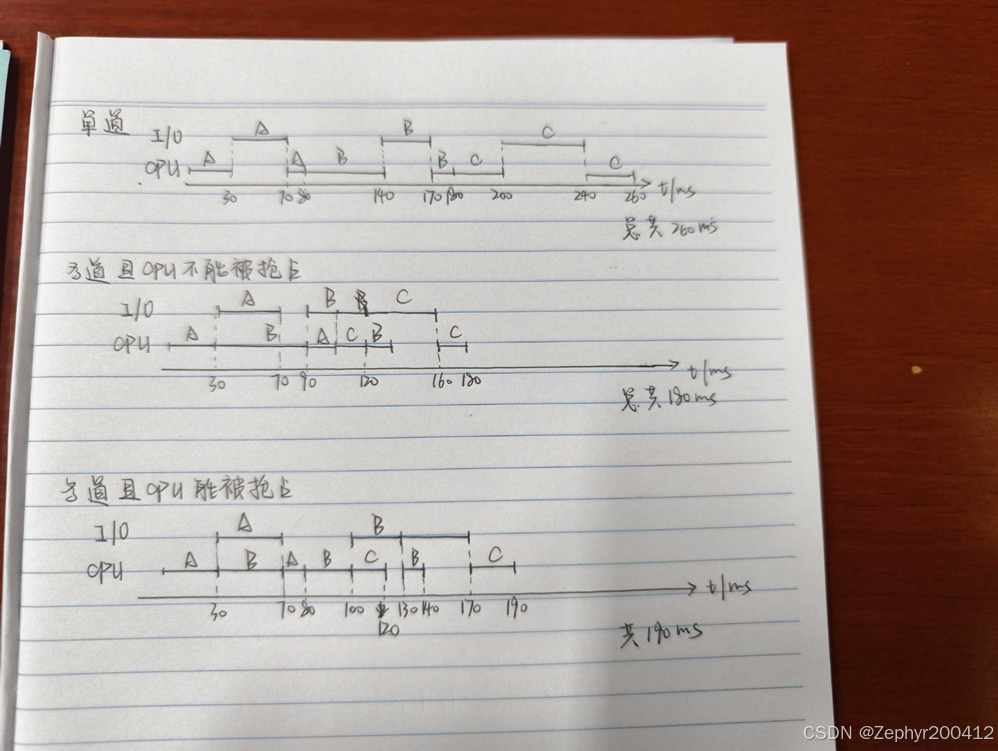 单道
I/O A B C
CPU A A B B C C
30 70 80 140 170 180 200 240 260 t/ms
总共260ms
多道且CPU不能被抢占
I/O A B C
CPU A B A C B C
30 70 90 120 160 180 t/ms
总共180ms
多道且CPU能被抢占
I/O A B
CPU A B A B C B C
30 70 80 100 130 140 170 190 t/ms
120
共190ms
CSDN @Zephyr200412